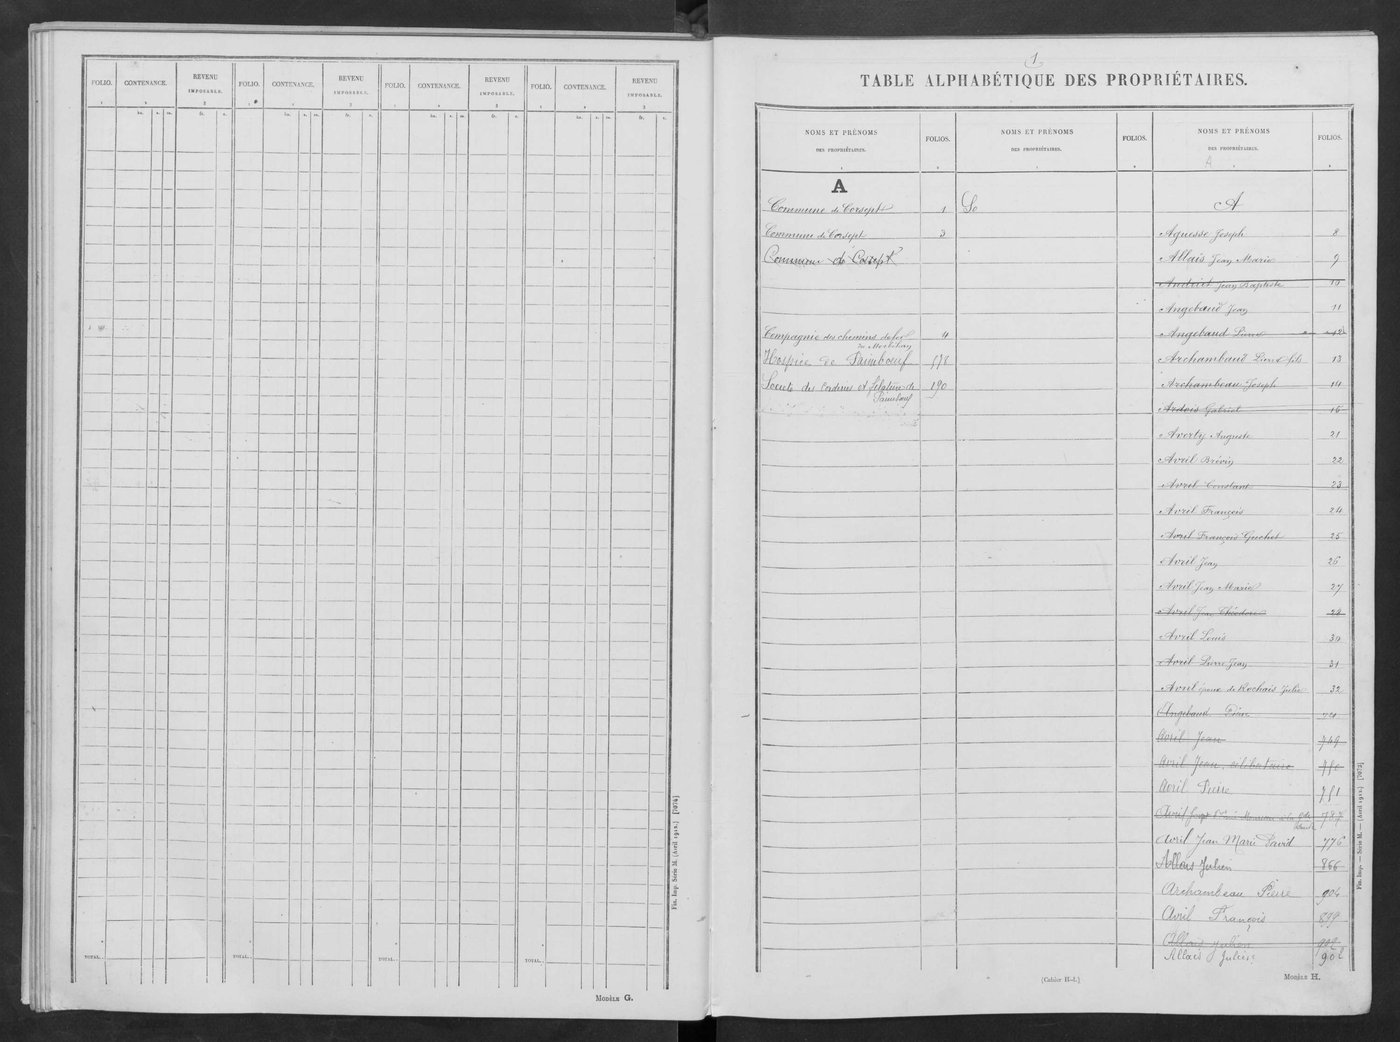 FOLIO. CONTENANCE. REVENU IMPOSABLE. FOLIO. CONTENANCE. REVENU IMPOSABLE. FOLIO. CONTENANCE. REVENU IMPOSABLE. FOLIO. CONTENANCE. REVENU IMPOSABLE.
1 2 3 1 2 3 1 2 3 1 2 3
ha. a. m. fr. c. ha. a. m. fr. c. ha. a. m. fr. c. ha. a. m. fr. c.
TOTAL. TOTAL. TOTAL. TOTAL.
Modèle G.
Fin. Imp. Série M. (Avril 1912.) [7074]
1
TABLE ALPHABÉTIQUE DES PROPRIÉTAIRES.
NOMS ET PRÉNOMS DES PROPRIÉTAIRES. FOLIOS. NOMS ET PRÉNOMS DES PROPRIÉTAIRES. FOLIOS. NOMS ET PRÉNOMS DES PROPRIÉTAIRES. FOLIOS.
A
A
Commune de Corsept 1
Commune de Corsept 3
Commune de Corsept
Compagnie des chemins de fer 4
du Morbihan
Hospice de Paimboeuf 178
Société des Corderies et filature de 190
Paimboeuf
So
A
Agnesse Joseph 8
Allais Jean Marie 9
Andriet Jean Baptiste 10
Angebaud Jean 11
Angebaud Pierre 12
Archambaud Pierre fils 13
Archambeau Joseph 14
Ardois Gabriel 16
Averty Auguste 21
Avril Brévin 22
Avril Constant 23
Avril François 24
Avril François Guchet 25
Avril Jean 26
Avril Jean Marie 27
Avril Jean Théodore 29
Avril Louis 30
Avril Pierre Jean 31
Avril épouse de Rochais Julie 32
Angebaud Pierre
Avril Jean 749
Avril Jean, célibataire 750
Avril Pierre 751
Avril 787
Avril Jean Marie David 776
Allais Julien 866
Archambeau Pierre 904
Avril François 899
Allais Julien 902
Allais Julien 902
(Cahier H-1.)
Modèle H.
Fin. Imp. — Série M. — (Avril 1912.) [7073]